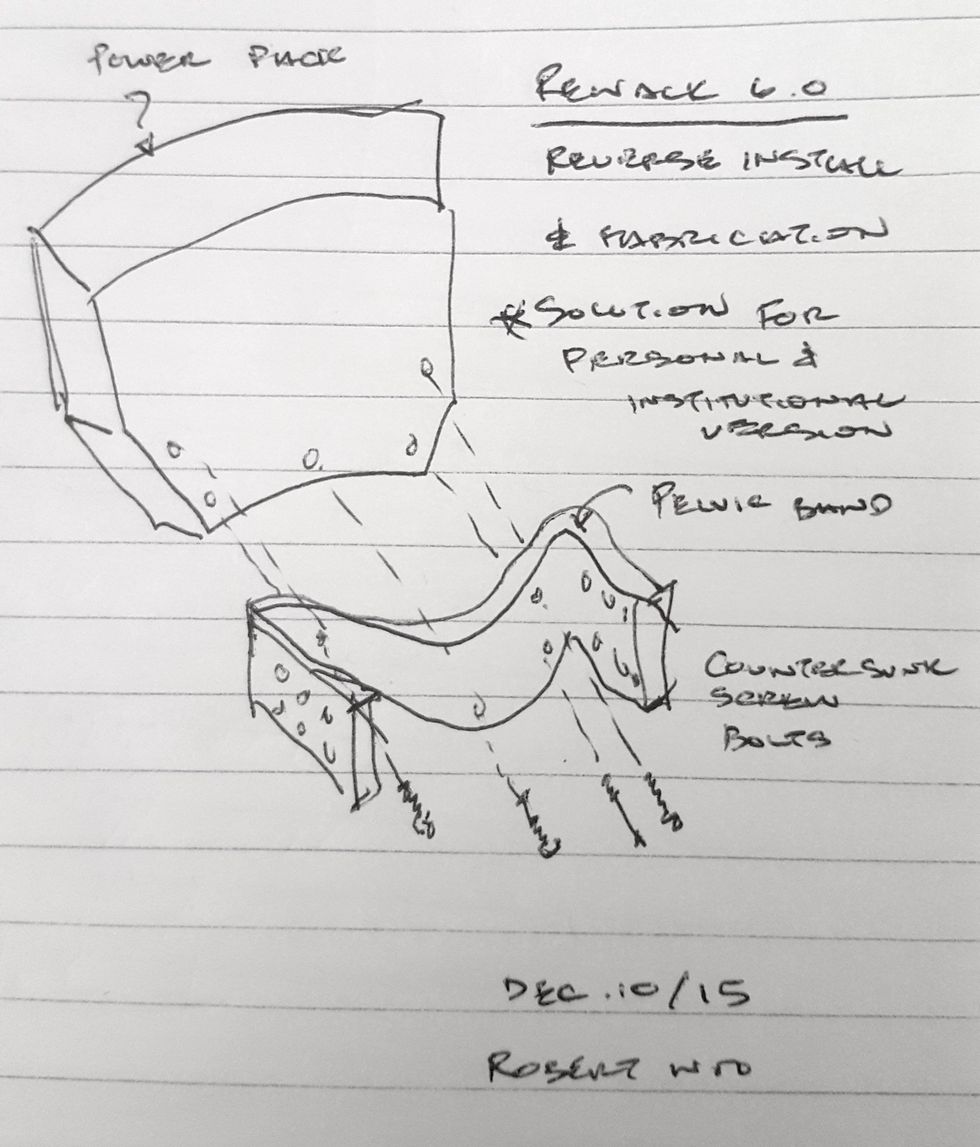 POWER PACK
REWALK 6.0
REVERSE INSTALL
& FABRICIATION
* SOLUTION FOR
PERSONAL &
INSTITUTIONAL
VERSION
PELVIC BAND
COUNTERSUNK
SCREW
BOLTS
DEC. 10/15
ROBERT